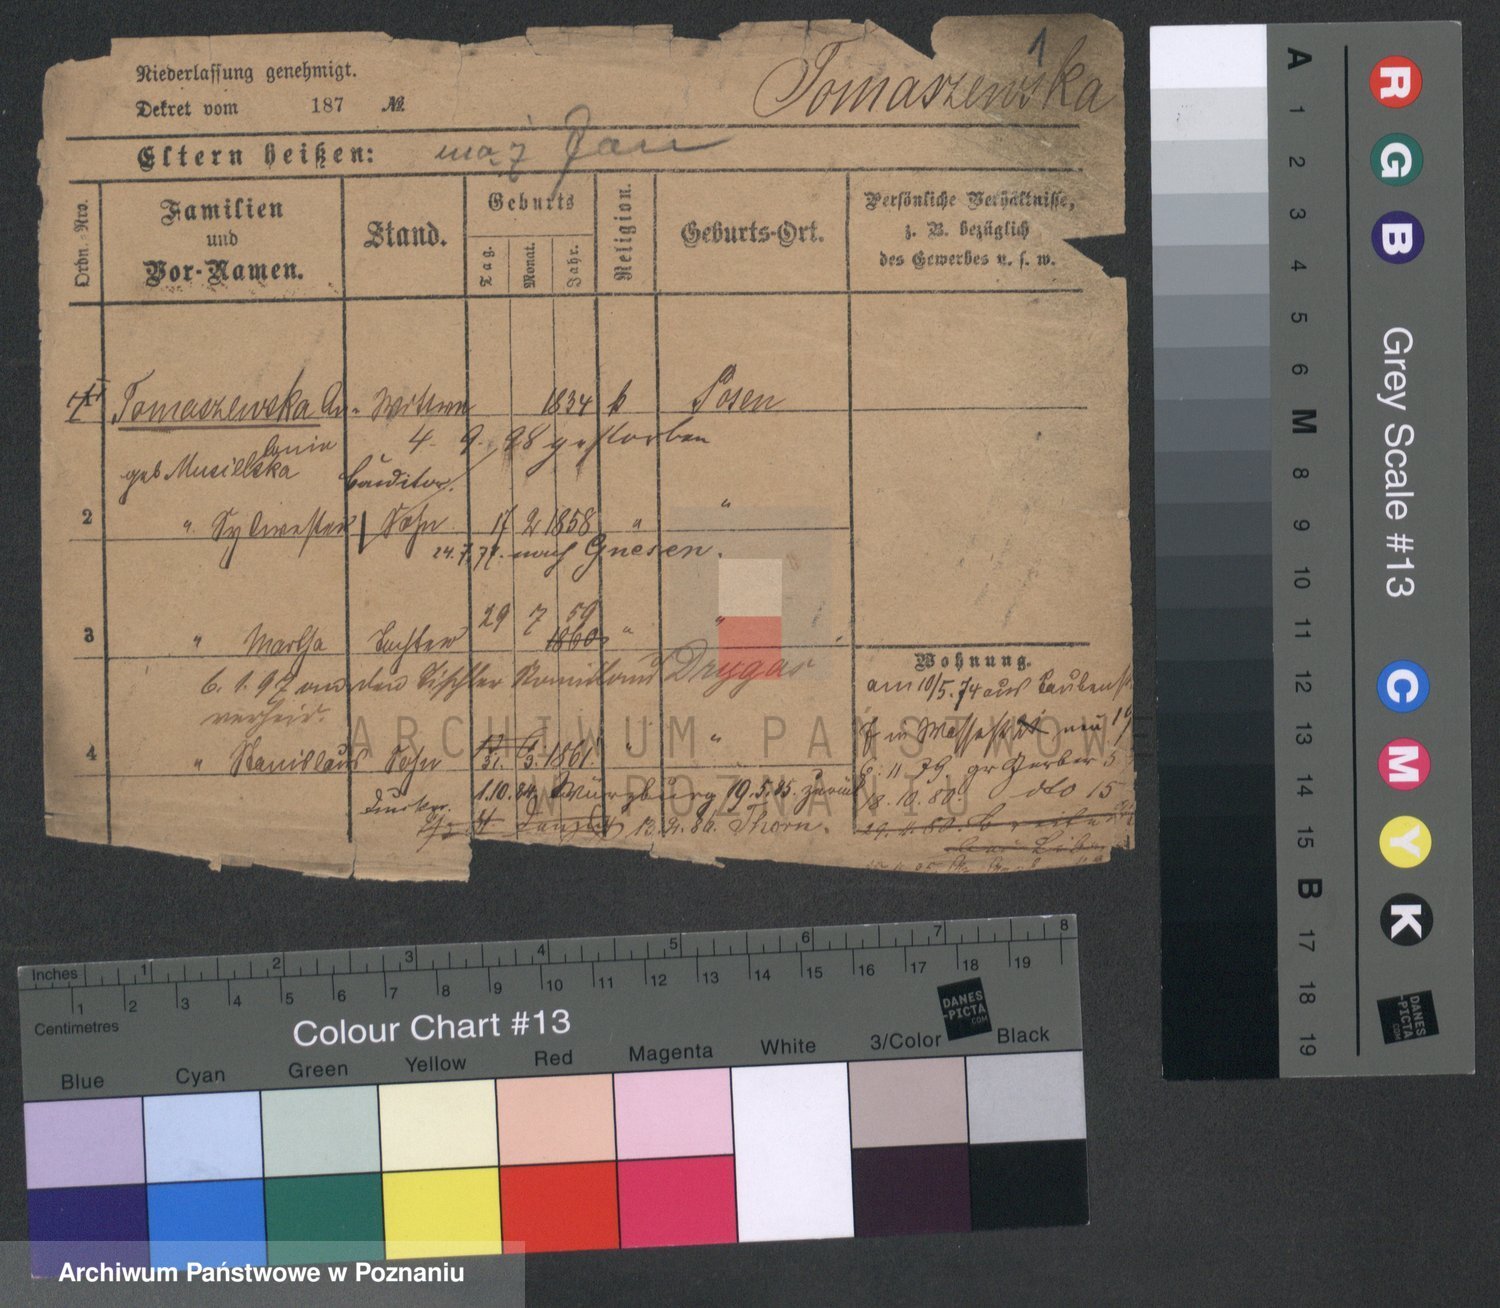 1
Niederlassung genehmigt.
Tomaszewska
Dekret vom 187 №
Eltern heißen: mąż Jan
Ordn. Nro.
Familien
und
Vor-Namen.
Stand.
Geburts
Tag.
Monat.
Jahr.
Religion.
Geburts-Ort.
Persönliche Verhältnisse,
z. B. bezüglich
des Gewerbes u. s. w.
Tomaszewska An- Wittwe 1834 k Posen
tonie
4. 9. 98 gestorben
geb Musielska
Conditor.
2 " Sylwester Sohn 17 2 1858 " "
24.7.77. nach Gnesen.
3 " Martha Tochter 29 7 59 " "
1860
6. 1. 97 an den Tischler Drygas
verheir.
Wohnung.
am 10/5. 74 aus
4 " Stanislaus Sohn 1861. " "
6. 11 79 gr Gerber 5
1.10.84 Würzburg 19.5.85. zurück
18. 10. 80. dto 15
12.9.86. Thorn.
ARCHIWUM PAŃSTWOWE
W POZNANIU
A 1 2 3 4 5 6 M 8 9 10 11 12 13 14 15 B 17 18 19
R G B
Grey Scale #13
C M Y K
DANES
-PICTA
.COM
Inches 1 2 3 4 5 6 7 8
Centimetres 1 2 3 4 5 6 7 8 9 10 11 12 13 14 15 16 17 18 19
Colour Chart #13
DANES
-PICTA
.COM
Blue Cyan Green Yellow Red Magenta White 3/Color Black
Archiwum Państwowe w Poznaniu